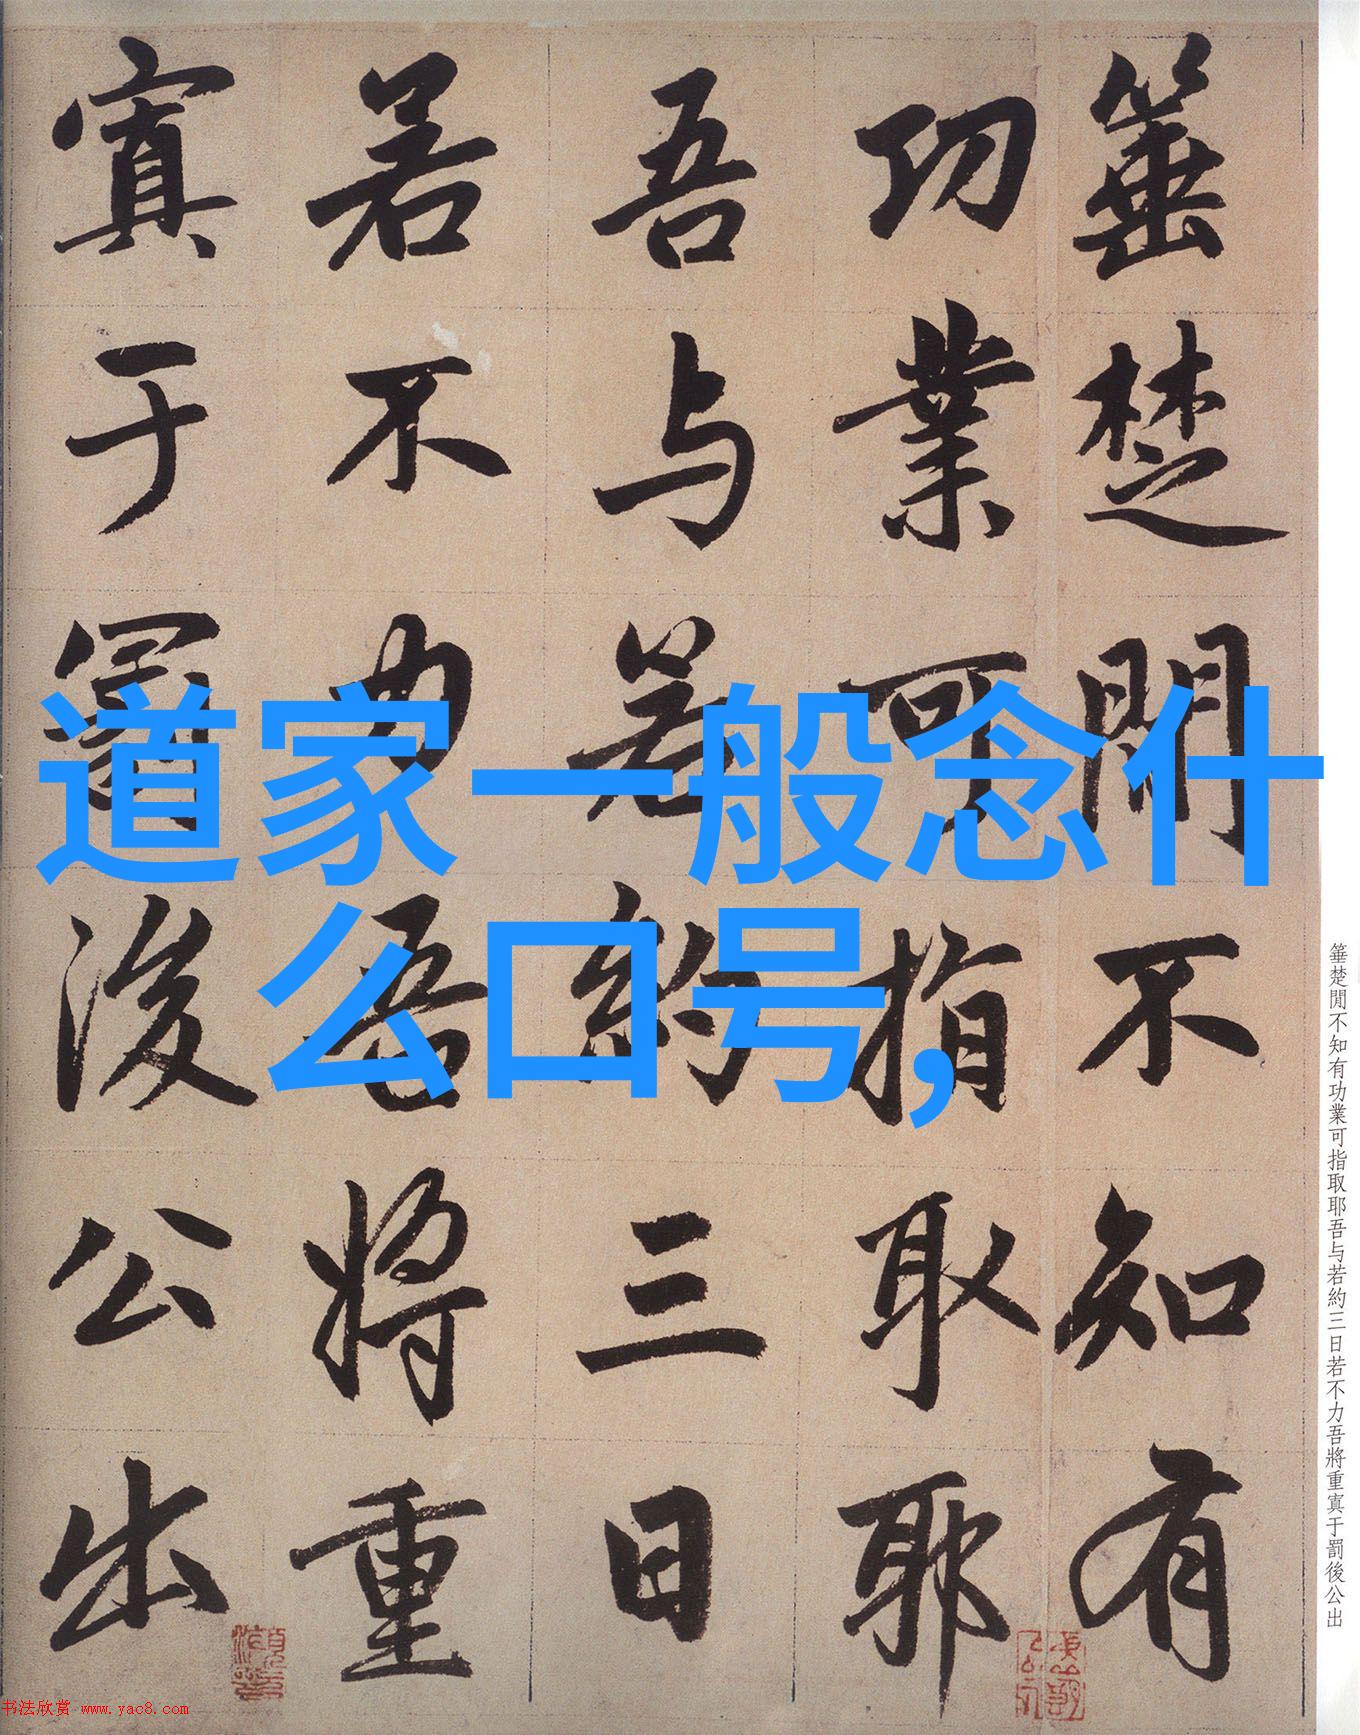 箠楚閒不知有
功業可指取耶
吾与若約三日
若不力吾將重
寘于罰後公出
道家一般念什
么口号,
箠楚閒不知有功業可指取耶吾与若約三日若不力吾將重寘于罰後公出
书法欣赏 www.yac8.com